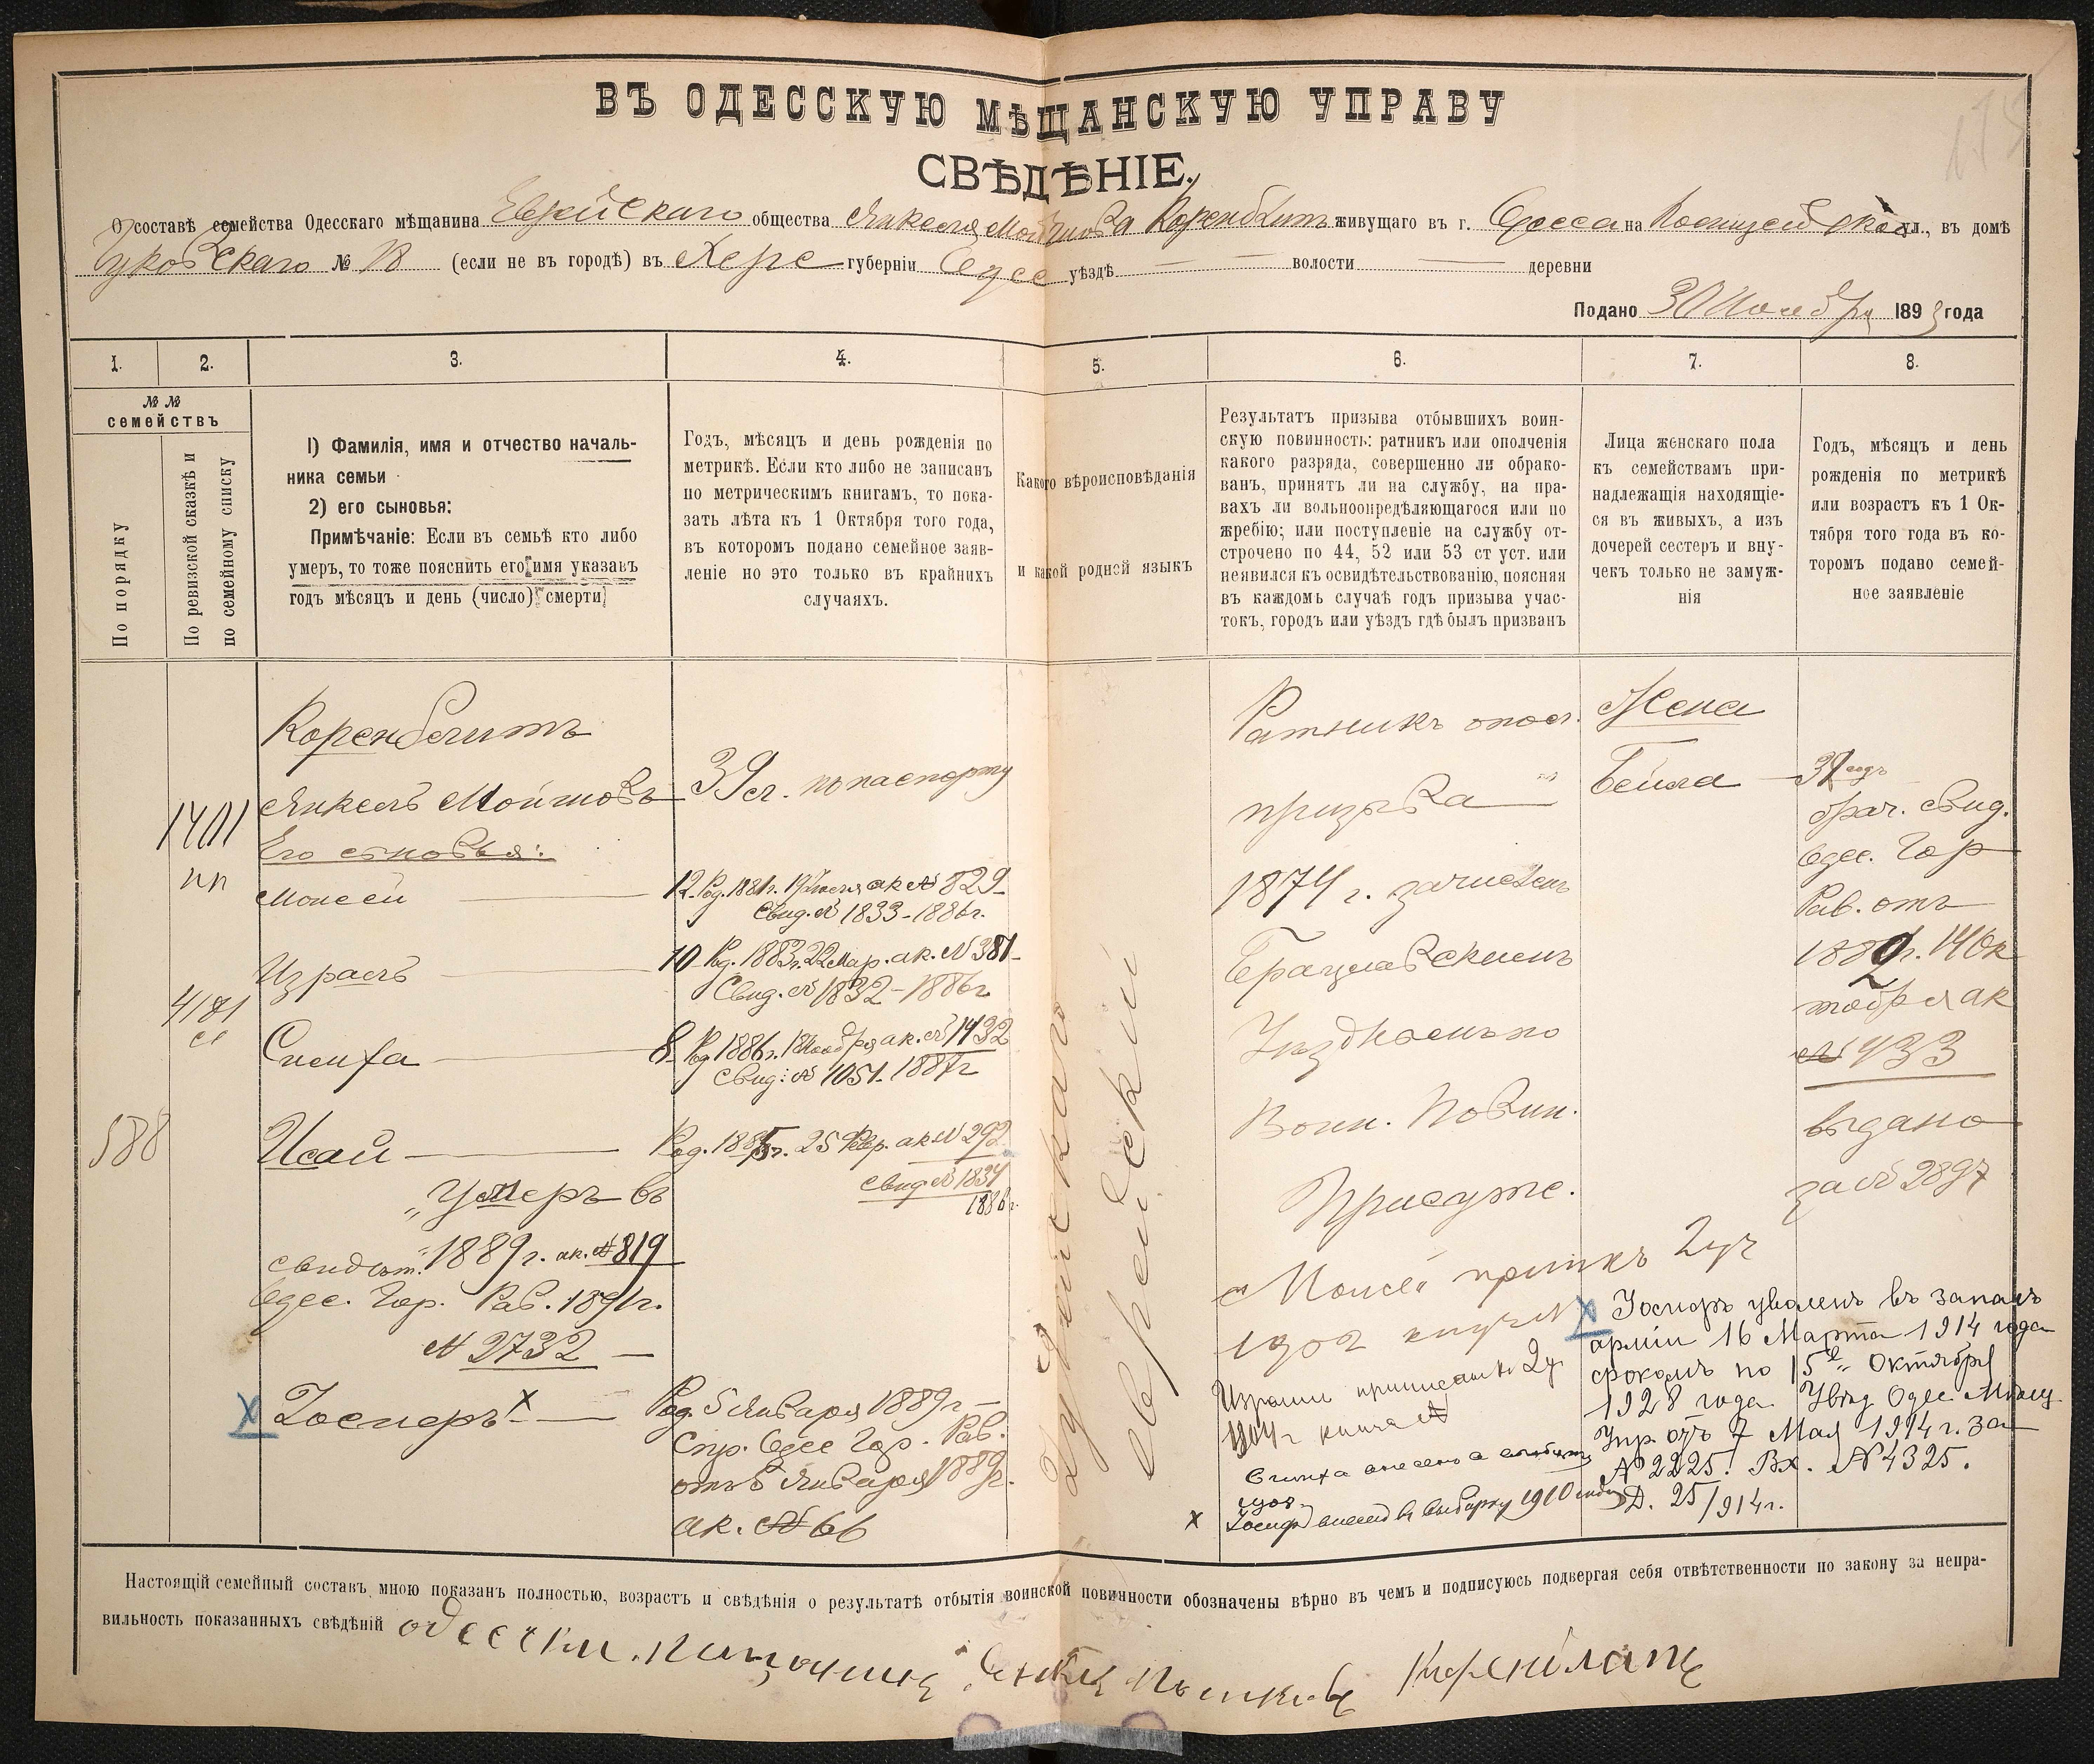 ВЪ ОДЕССКУЮ МѢЩАНСКУЮ УПРАВУ
СВѢДѢНІЕ.
О составѣ семейства Одесскаго мѣщанина Еврейскаго общества Янкеля Мойшова Коренблитъ живущаго въ г. Одесса на Полицейской ул., въ домѣ
№ 18 (если не въ городѣ) въ Херс губерніи Одес уѣздѣ — — волости — деревни
Подано 30 Ноября 1893 года
1.
2.
3.
4.
5.
6.
7.
8.
№ №
семействъ
По порядку
По ревизской сказкѣ и
по семейному списку
1) Фамилія, имя и отчество началь-
ника семьи
2) его сыновья:
Примѣчаніе: Если въ семьѣ кто либо
умеръ, то тоже пояснить его имя указавъ
годъ мѣсяцъ и день (число) смерти
Годъ, мѣсяцъ и день рожденія по
метрикѣ. Если кто либо не записанъ
по метрическимъ книгамъ, то пока-
зать лѣта къ 1 Октября того года,
въ которомъ подано семейное заяв-
леніе но это только въ крайнихъ
случаяхъ.
Какого вѣроисповѣданія
и какой родной языкъ
Результатъ призыва отбывшихъ воин-
скую повинность: ратникъ или ополченія
какого разряда, совершенно ли обрако-
ванъ, принятъ ли на службу, на пра-
вахъ ли вольноопредѣляющагося или по
жребію; или поступленіе на службу от-
строчено по 44, 52 или 53 ст уст. или
неявился къ освидѣтельствованію, поясняя
въ каждомъ случаѣ годъ призыва учас-
токъ, городъ или уѣздъ гдѣ былъ призванъ
Лица женскаго пола
къ семействамъ при-
надлежащія находящіе-
ся въ живыхъ, а изъ
дочерей сестеръ и вну-
чекъ только не замуж-
нія
Годъ, мѣсяцъ и день
рожденія по метрикѣ
или возрастъ къ 1 Ок-
тября того года въ ко-
торомъ подано семей-
ное заявленіе
1401
4181
588
Коренблитъ
Янкель Мойшовъ
Его сыновья:
Моисей
Израель
Симха
Исай
Умеръ въ
свидѣт. 1889 г. ак. № 819
Одес. Гор. Рав. 1891г.
№ 2732 —
Іосперъ х —
39 л. по паспорту
12 Род. 1881г. 19 Іюля ак № 829
Свид. № 1833-1886г.
10 Род. 1883г. 22 Мар. ак. № 381
Свид. № 1832-1886г
8 Род 1886г. 1 Ноября ак. № 1432
Свид: № 1051-1887г
Род. 1885г. 25 Февр. ак № 292
свид № 1834
1886г.
Род. 5 Января 1889г —
Спр. Одес Гор. Рав.
Января 1889г.
ак. № 66
Іудейскаго
еврейский
Ратникъ опол.
призыва
1874 г. зачисленъ
Брацлавскимъ
Уѣзднымъ по
Воин. Повин.
Присутс.
Моисей 2 уч
1902
Израиль приписанъ 2 у
1904 г книга №
Симха внесенъ в
1908
х Іосифъ внесенъ въ выборку 1910 года
Жена
Бейла
37 годъ
брач. свид.
Одес. Гор
Рав. отъ
1882г. 14 Ок
тября ак
№ 433
выдано
за № 2897
х Іосифъ уволенъ въ запасъ
арміи 16 Марта 1914 года
срокомъ по 15е Октября
1928 года. Увѣд Одес Мѣщ
Упр отъ 7 Мая 1914 г. за
№ 2225. Вх. № 4325.
Д. 25/914г.
Настоящій семейный составъ мною показанъ полностью, возрастъ и свѣдѣнія о результатѣ отбытія воинской повинности обозначены вѣрно въ чемъ и подписуюсь подвергая себя отвѣтственности по закону за непра-
вильность показанныхъ свѣдѣній